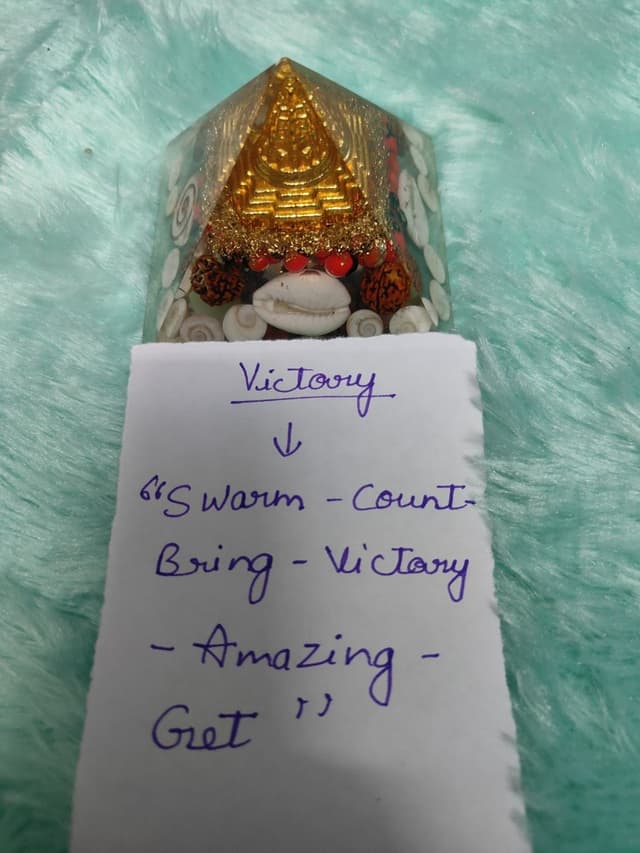 Victory
↓
"Swarm - Count-
Bring - Victory
- Amazing -
Get "